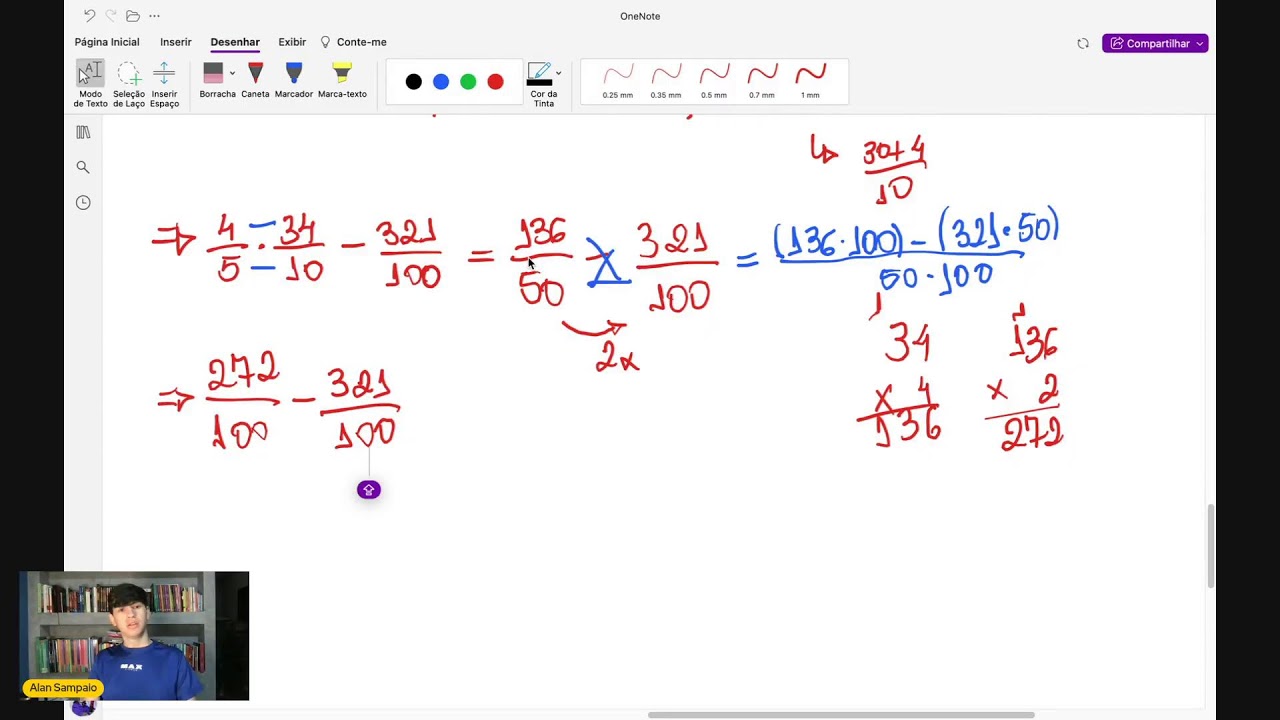 OneNote
Página Inicial Inserir Desenhar Exibir Conte-me Compartilhar
Modo de Texto
Seleção de Laço
Inserir Espaço
Borracha
Caneta
Marcador
Marca-texto
Cor da Tinta
0.25 mm 0.35 mm 0.5 mm 0.7 mm 1 mm
↳ 30+4/10
⇒ 4/5 · 34/10 − 321/100 = 136/50 − 321/100 = (136·100) − (321·50)/50·100
2x
⇒ 272/100 − 321/100
1
34
x 4
136
1
136
x 2
272
MAX
Alan Sampaio